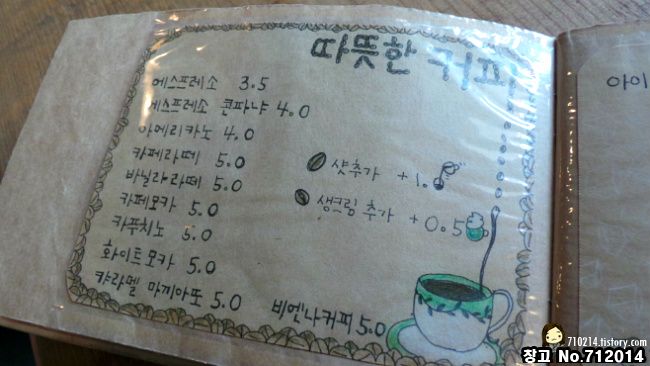 따뜻한 커피
에스프레소 3.5
에스프레소 콘파냐 4.0
아메리카노 4.0
카페라떼 5.0
바닐라라떼 5.0
카페모카 5.0
카푸치노 5.0
화이트모카 5.0
캬라멜 마끼아또 5.0
비엔나커피 5.0
샷추가 +1.
생크림 추가 +0.5
아이
710214.tistory.com
창고 No.712014